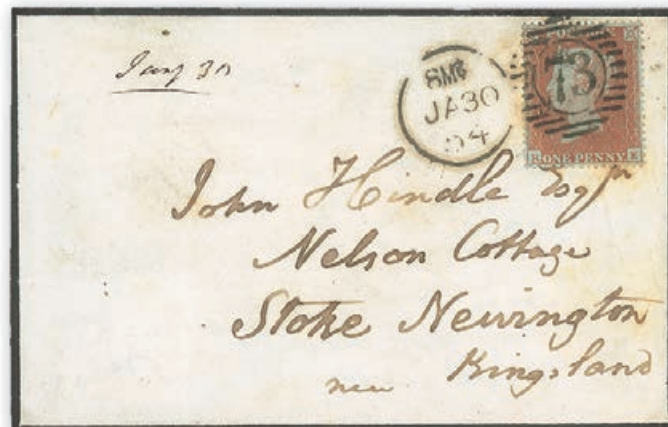 Jany 30
8MC
JA30
54
73
ONE PENNY
John Hindle Esqr
Nelson Cottage
Stoke Newington
near Kingsland